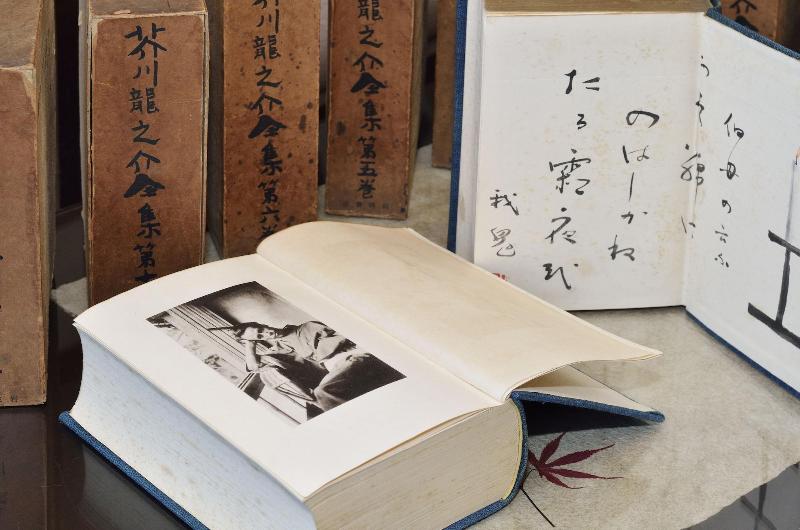 芥川龍之介全集第
川龍之介全集第六巻
龍之介全集第五巻
伯母の云ふ
うす綿は
のばしかね
たる霜夜哉
我鬼